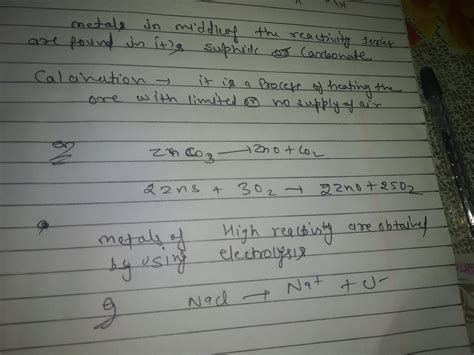 metals in middle of the reactivity series
are found in its sulphide or Carbonate
Calcination → it is a Process of heating the
ore with limited or no supply of air
ZnCO3 → ZnO + CO2
2ZnS + 3O2 → 2ZnO + 2SO2
metals of High reactivity are obtained
by using electrolysis
NaCl → Na+ + Cl-